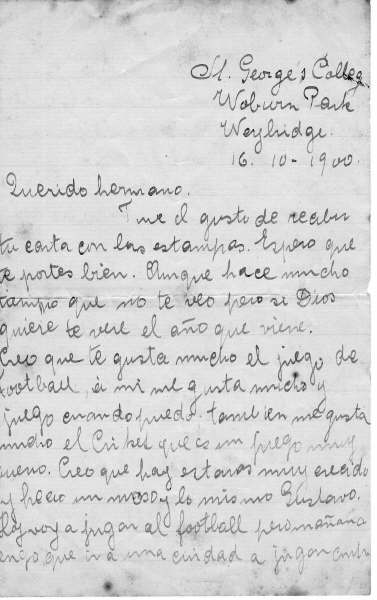 St. George's Colleg
Woburn Park
Weybridge.
16. 10 - 1900.
Querido hermano.
Tuve el gusto de recibir
tu carta con las estampas. Espero que
te portes bien. Aunque hace mucho
tiempo que no te veo pero si Dios
quiere te vere el año que viene.
Creo que te gusta mucho el juego de
football, a mi me gusta mucho y
juego cuando puedo. tambien me gusta
mucho el Criket que es un juego muy
bueno. Creo que hay estaras muy crecido
y hecho un mozo y lo mismo Gustavo.
Hoy voy a jugar al football pero mañana
tengo que ir a una ciudad a jugar contr